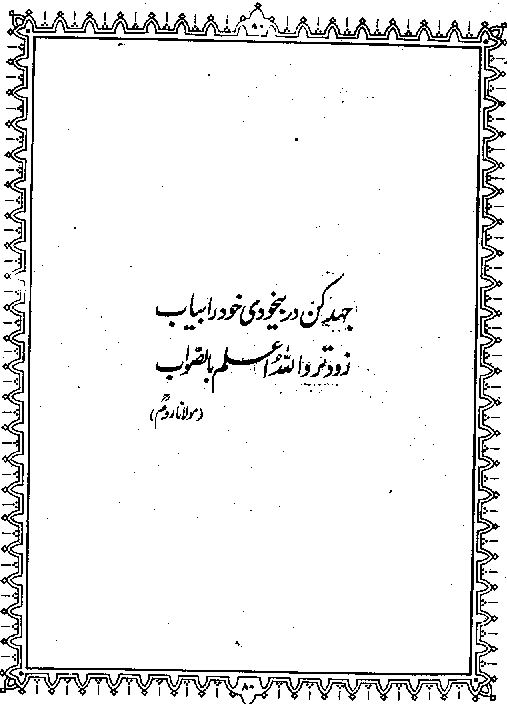 ۸۰
جہد کن در بیخودی خود را بیاب
زود تر واللہ اعلم بالصواب
(مولانا رومؒ)
۸۰